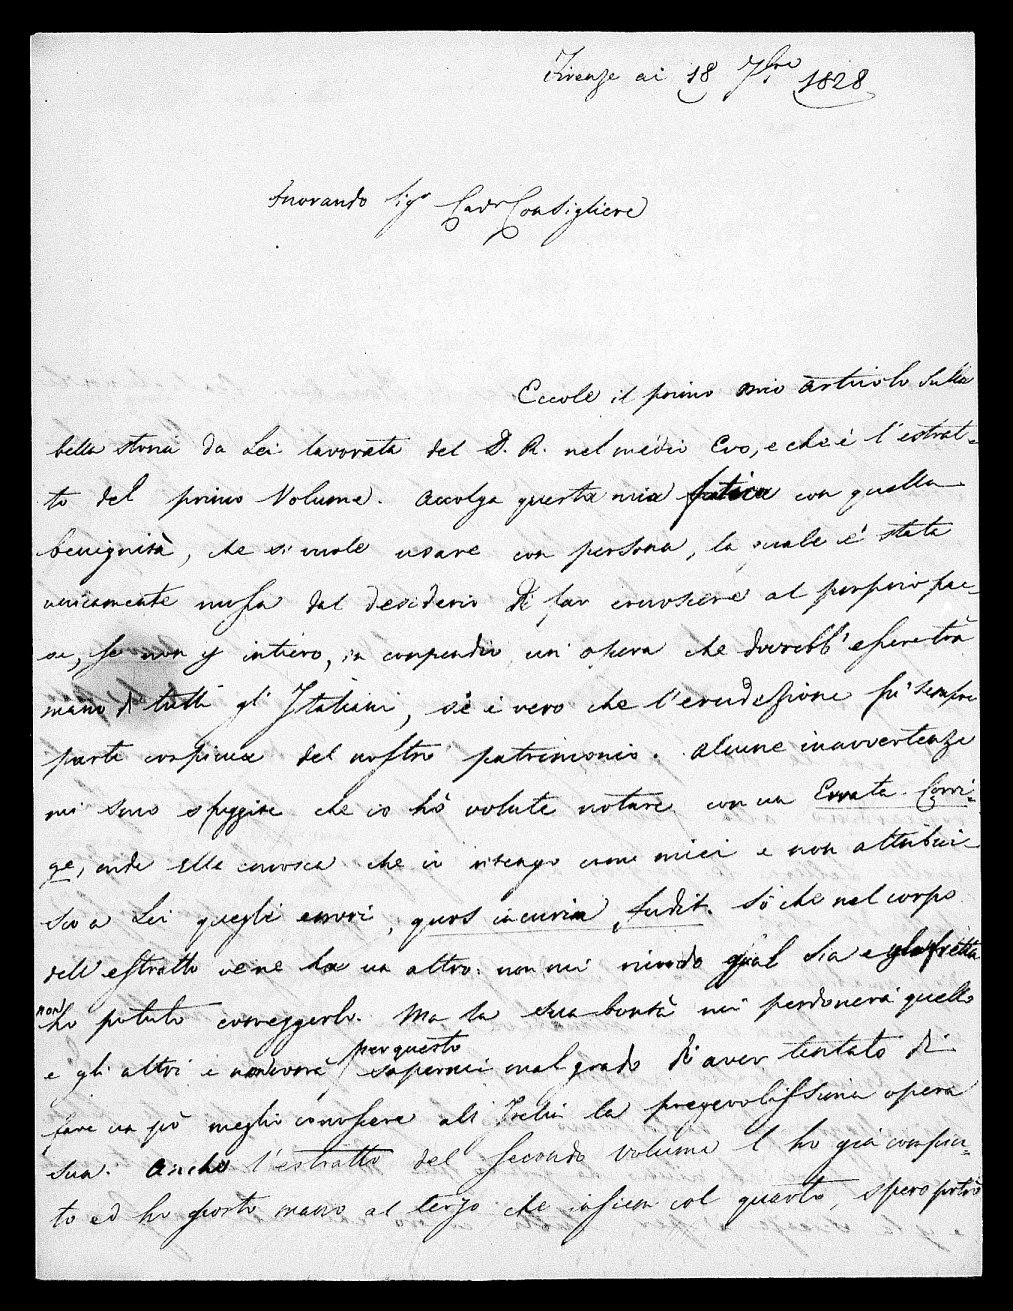 Firenze ai 18 7bre 1828
Onorando Sigr Cavr Consigliere
Eccole il primo mio articolo sulla
bella storia da Lei lavorata del D. R. nel medio Evo, e che è l'estrat-
to del primo Volume. Accolga questa mia fatica con quella
benignità, che si vuole usare con persona, la quale è stata
unicamente mossa dal desiderio di far conoscere al proprio pae-
se, se non p intiero, in compendio un'opera che dovrebb'essere tra
mano di tutti gl'Italiani, se è vero che l'erudizione fu sempre
parte cospicua del nostro patrimonio. Alcune inavvertenze
mi sono sfuggite che io hò volute notare con un Errata-Corri-
ge, onde Ella conosca che io ritengo come miei e non attribui-
sco a Lei quegli errori, quos incuria fudit. Sò che nel corpo
dell'estratto ve ne ha un altro: non mi ricordo qual sia e
non ho potuto correggerlo. Ma la sua bontà mi perdonerà quello
e gli altri e non vorrà per questo sapermi mal grado di aver tentato di
fare un pò meglio conoscere all'Italia la pregevolissima opera
sua. Anche l'estratto del secondo volume l'ho già compiu-
to ed ho posto mano al terzo che insiem col quarto, spero potrò